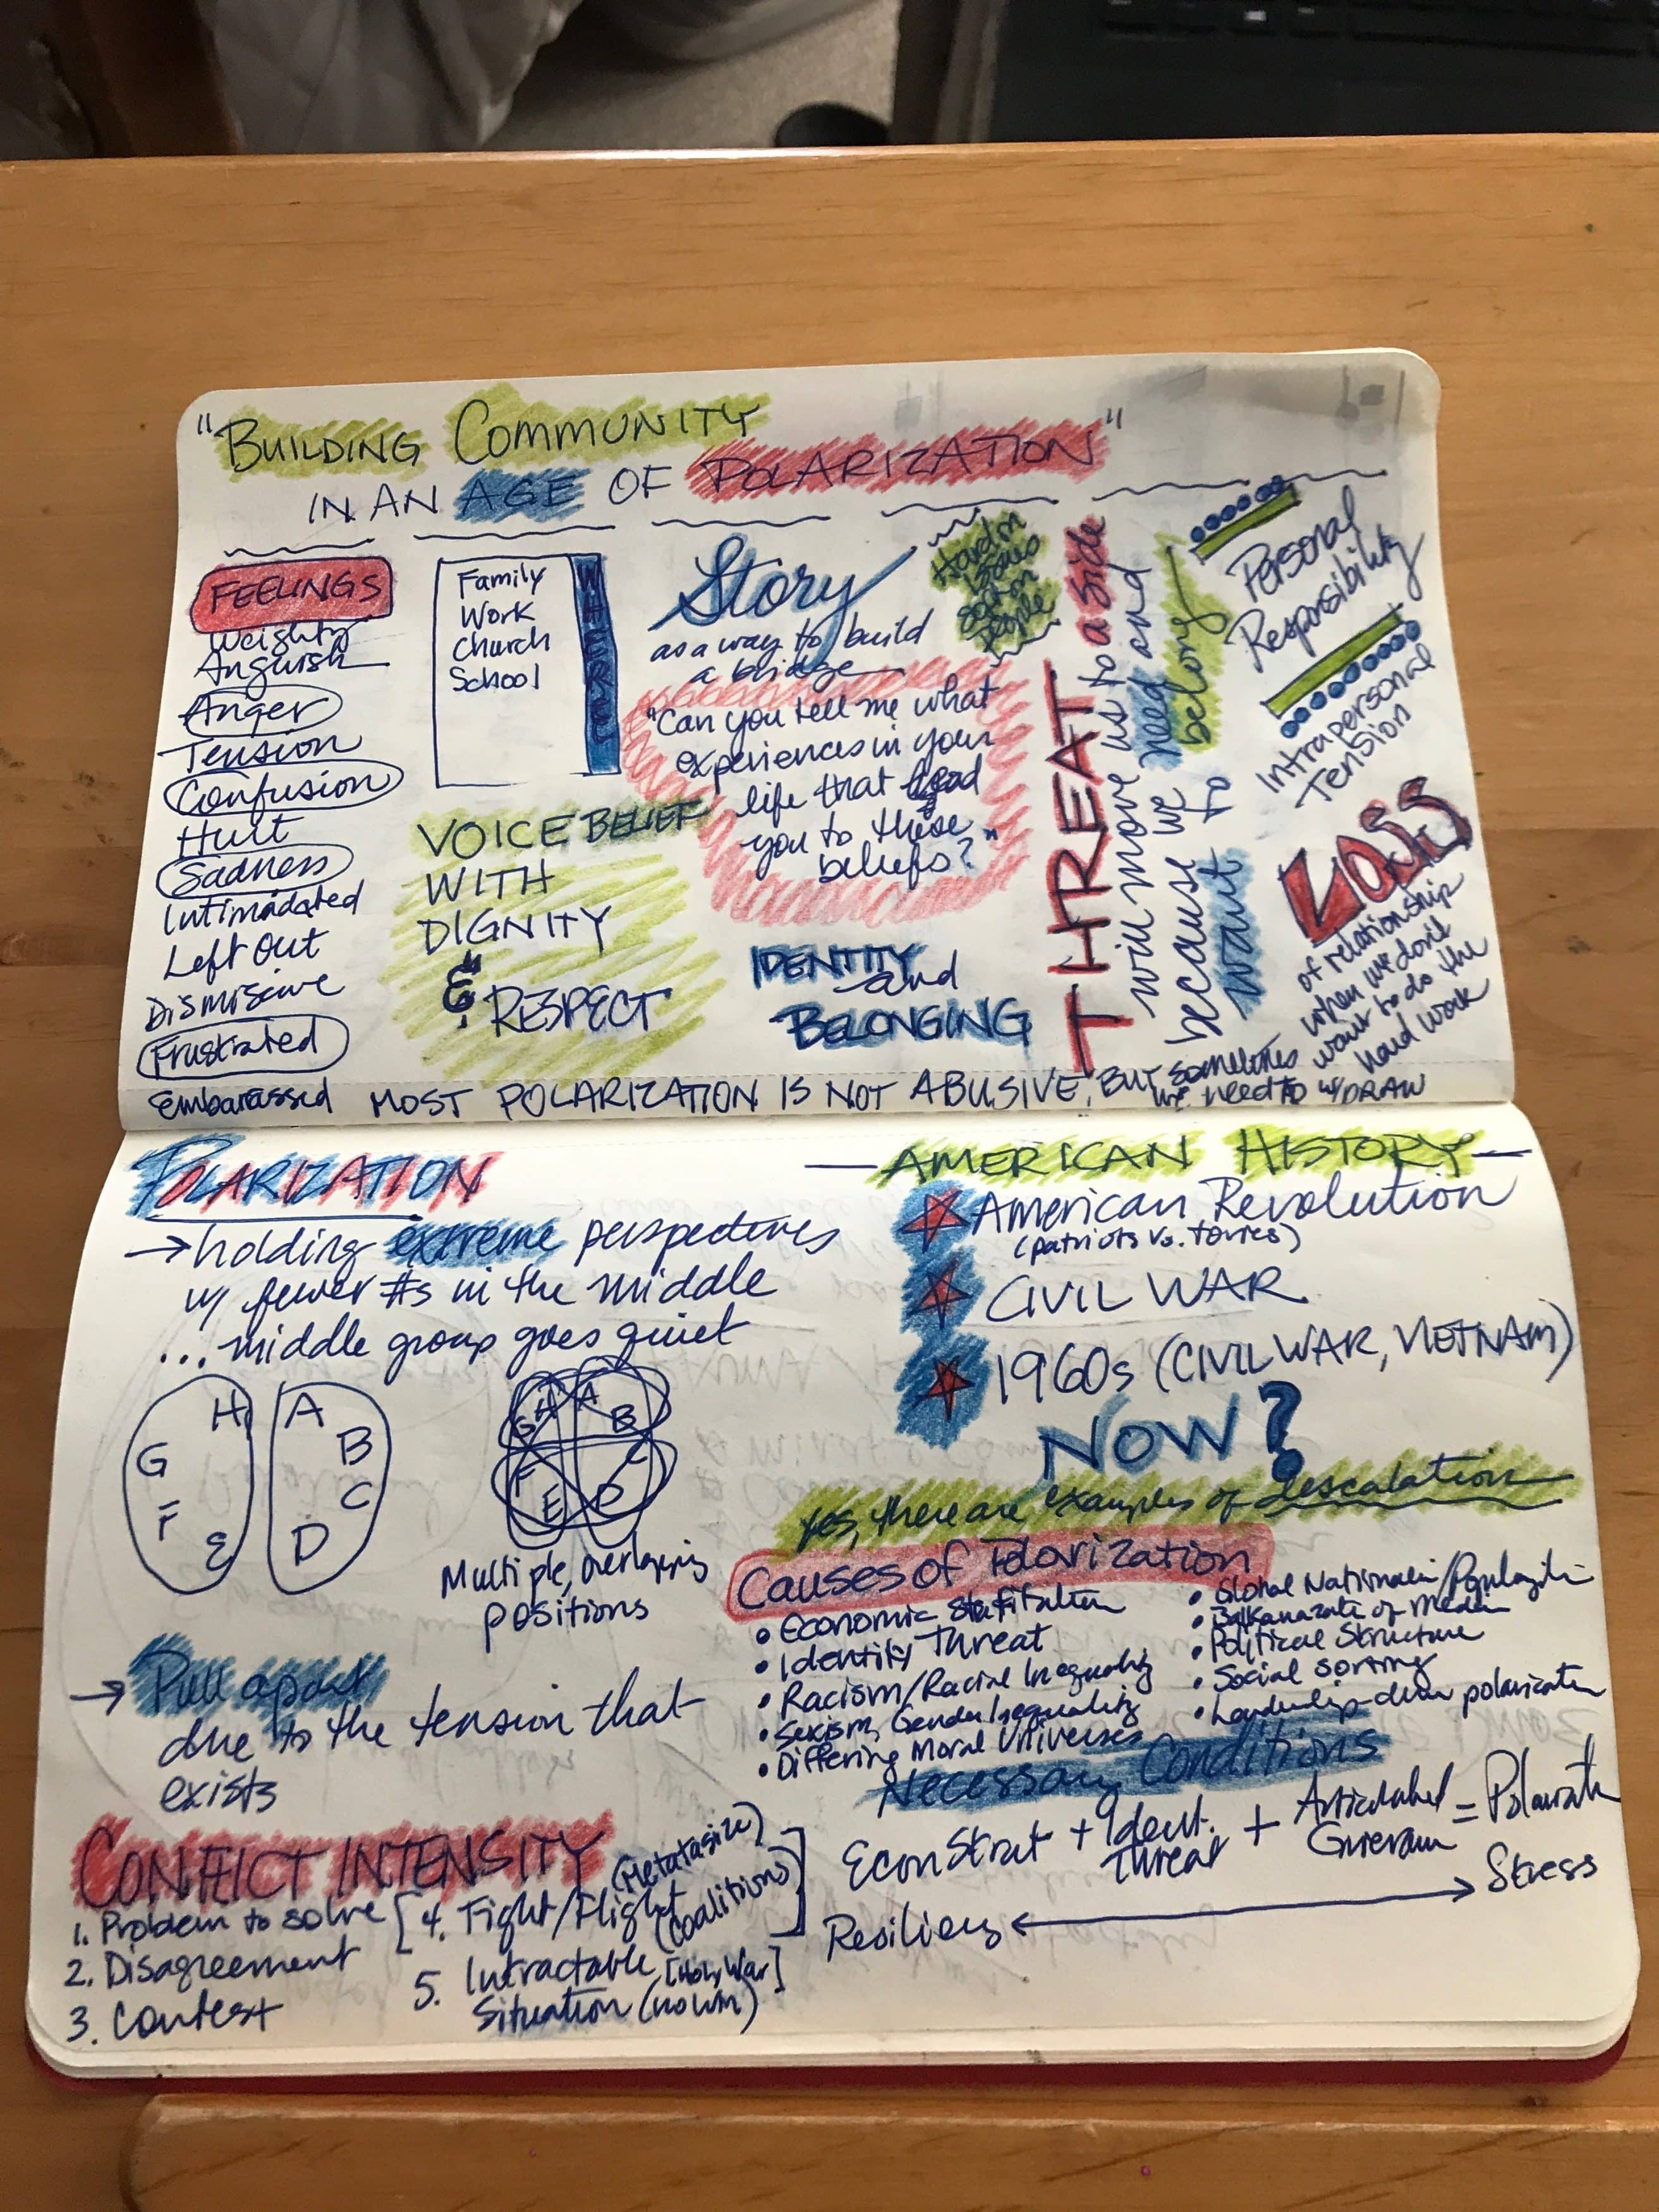 "BUILDING COMMUNITY
IN AN AGE OF POLARIZATION"
FEELINGS
Weighty
Anguish
Anger
Tension
Confusion
Hurt
Sadness
Intimadated
Left Out
Dismissive
Frustrated
Embarassed
Family
Work
Church
School
WHERE
VOICE BELIEF
WITH
DIGNITY
& RESPECT
Story
as a way to build
a bridge
"Can you tell me what
experiences in your
life that lead
you to these
beliefs?"
IDENTITY and
BELONGING
Hard on
issues
soft on
people
THREAT
will move us to a side
because we need and
want to belong
Personal
Responsibility
Intrapersonal
Tension
LOSS
of relationship
when we don't
want to do the
hard work
MOST POLARIZATION IS NOT ABUSIVE, BUT sometimes
we need to w/DRAW
POLARIZATION
→ holding extreme perspectives
w/ fewer #s in the middle
...middle group goes quiet
H
G
F
E
A
B
C
D
G H A B
F E D C
Multiple, overlapping
positions
→ Pull apart
due to the tension that
exists
CONFLICT INTENSITY
1. Problem to solve
2. Disagreement
3. Contest
[4. Fight/Flight (Metatasize)
(Coalitions)]
5. Intractable [Holy War]
Situation (no win)
— AMERICAN HISTORY —
American Revolution
(patriots vs. tories)
CIVIL WAR
1960s (CIVIL WAR, VIETNAM)
NOW?
Yes, there are examples of descalation
Causes of Polarization
• Economic
• Identity Threat
• Racism/Racial Inequality
• Sexism, Gender Inequality
• Differing Moral Universes
• Global Nationalism/
• of Media
• Political Structure
• Social Sorting
• Leadership-driven polarization
Necessary Conditions
Econ Strat + Ident. Threat + Articulated =
Resiliency ↔ Stress